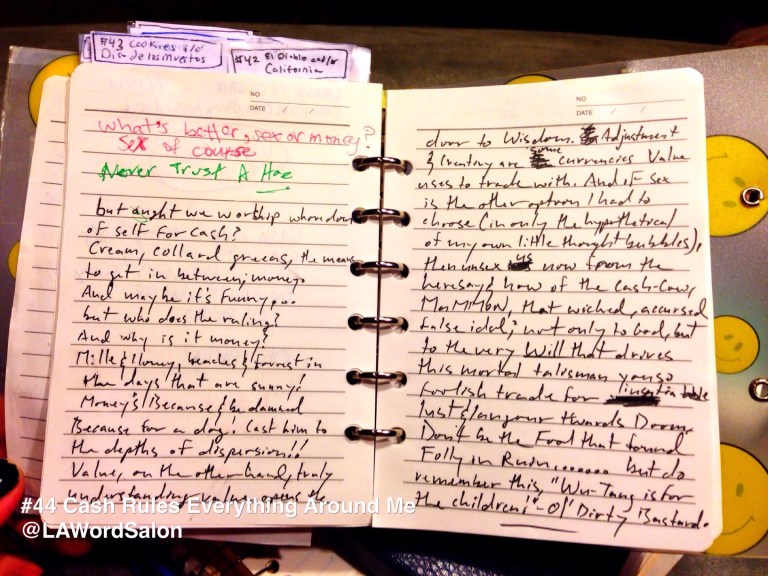 #43 Cookies &/or
Dia de los Muertos
#42 El Diablo and/or
California
NO
DATE / /
What's better, sex or money?
Sex of course
Never Trust A Hoe
but aught we worship whoredom
of self for cash?
Cream, collard greens, the means
to get in between, money.
And maybe it's funny...
but who does the ruling?
And why is it money?
Milk & Honey, beaches & forrest in
the days that are sunny!
Money's Because & be damned
Because for a dog! Cast him to
the depths of dispersion!!
Value, on the other hand, truly
understanding value opens the
NO
DATE / /
door to Wisdom. Adjustment
& Creating are some currencies Value
uses to trade with. And iF sex
is the other option I had to
choose (in only the hypothetical
of my own little thought bubbles),
then unsex us now from the
heresay'd how of the Cash-Cow,
MaMMON, that wicked, accursed
false idol; not only to God, but
to the very Will that drives
this mortal talisman you so
foolish trade for
lust & languor thwards Doom.
Don't be the Fool that found
Folly in Ruin....... but do
remember this, "Wu-Tang is for
the children!" -Ol' Dirty Bastard.
#44 Cash Rules Everything Around Me
@LAWordSalon